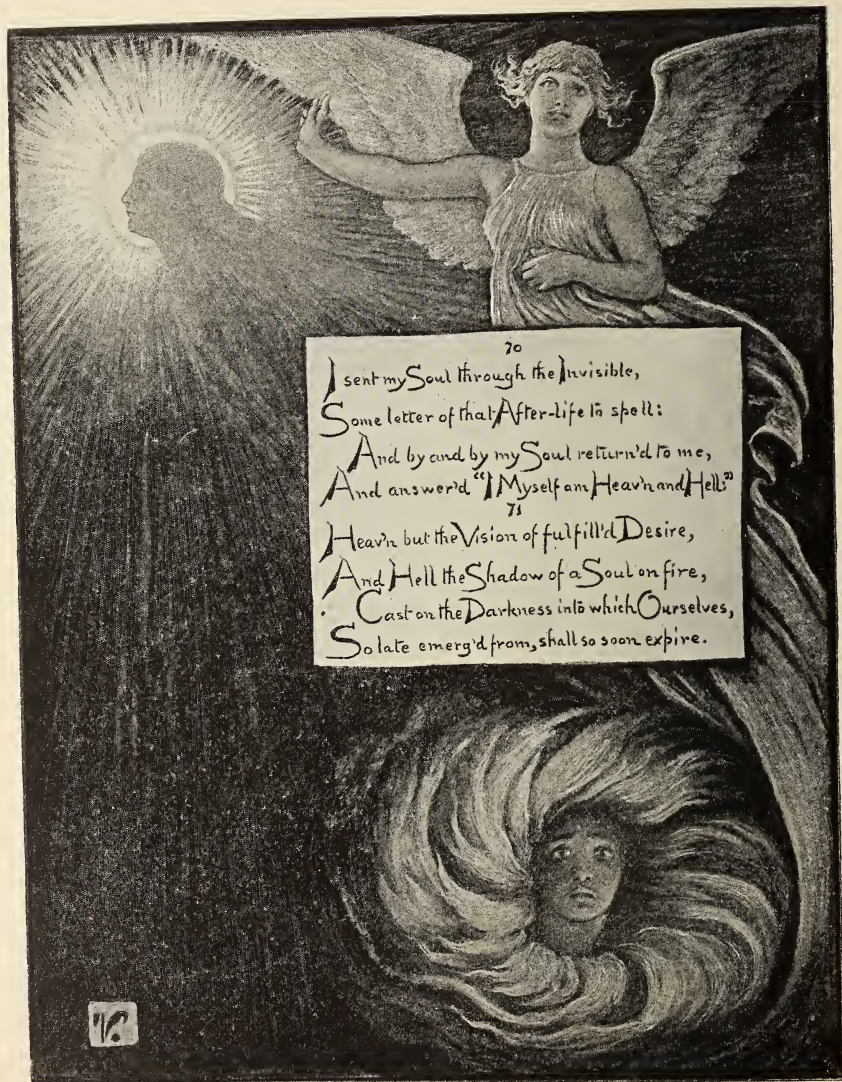 70
I sent my Soul through the Invisible,
Some letter of that After-life to spell:
And by and by my Soul return'd to me,
And answer'd "I Myself am Heav'n and Hell:"
71
Heav'n but the Vision of fulfill'd Desire,
And Hell the Shadow of a Soul on fire,
Cast on the Darkness into which Ourselves,
So late emerg'd from, shall so soon expire.
V.